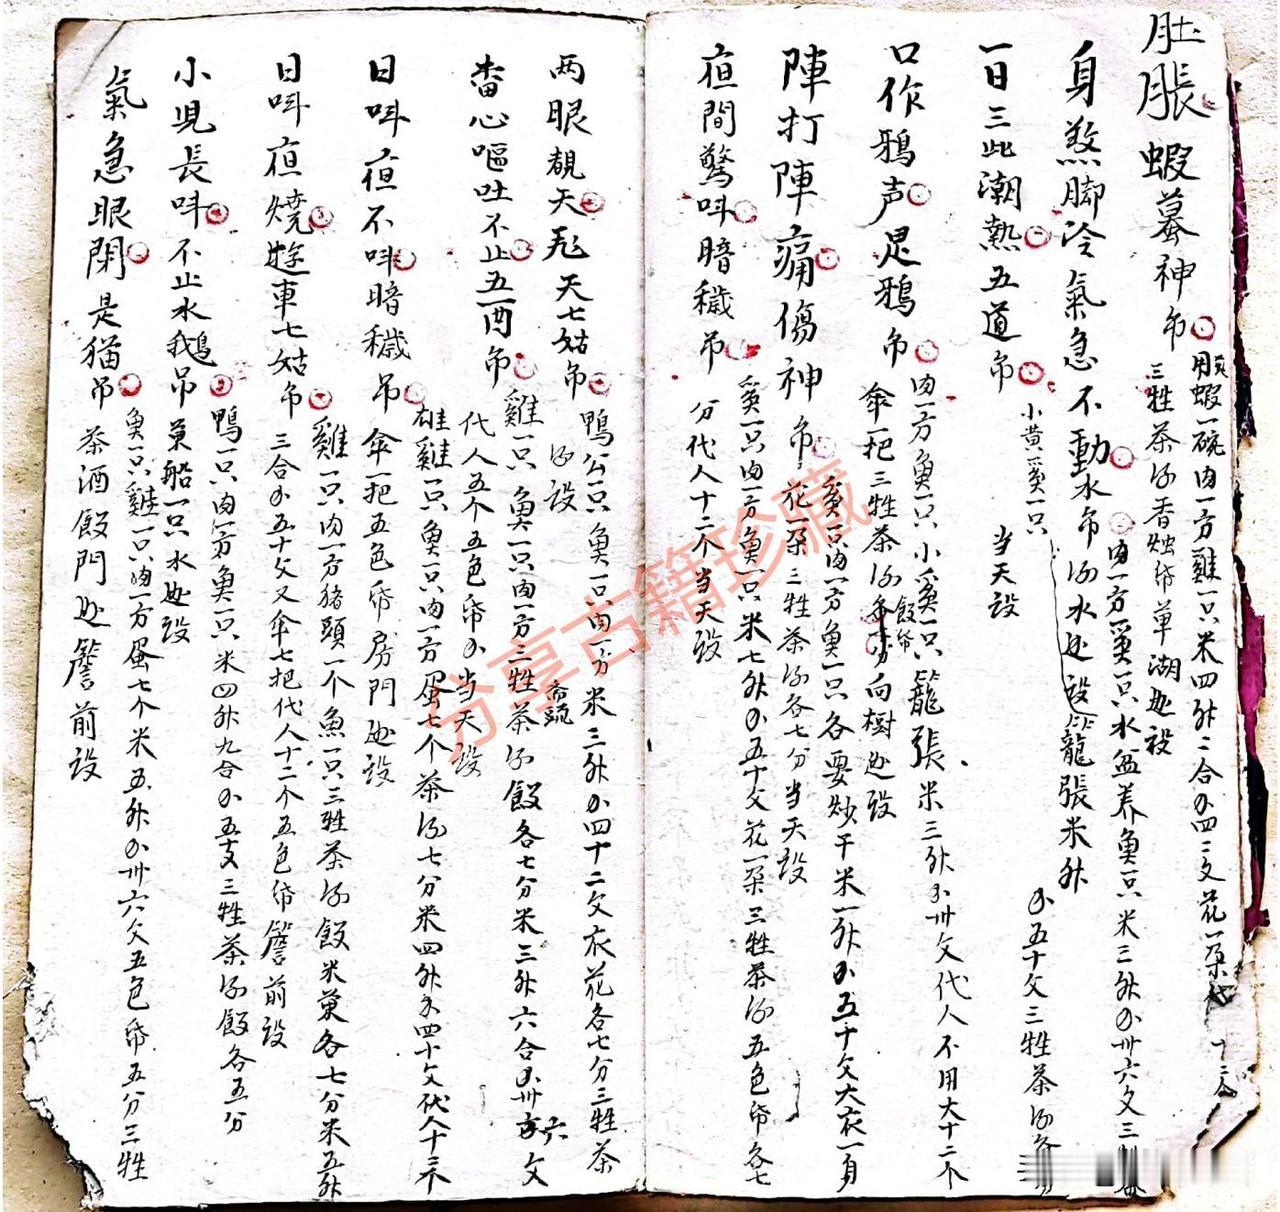 肚脹蝦蟇神吊
用蝦一碗肉一方雞一只米四升二合𠆢四二文花一朵代
三牲茶酒香烛帋草湖処設
身煞脚冷氣急不動水吊
肉一方奚一只水盆养魚一只米三升 卅六文三牲
酒水処設籠張米升
一日三此潮熱五道吊
小黄奚一只 五十文三牲茶酒各
当天設
口作鴉声是鴉吊
肉一方魚一只小奚一只籠張米三升 卅文代人不用大十二个
傘一把三牲茶酒飯帋 向樹処設
陣打陣痛傷神吊
奚一只肉一方魚一只各要炒干米一升 五十文大衣一身
花一朵三牲茶酒各七分当天設
夜間驚呌暗穢吊
奚一只肉一方魚一只米七升 五十文花一朵三牲茶酒五色帋各七
分代人十二个当天設
两眼覩天 天七姑吊
鴨公一只魚一只肉一方米三升 四十二文衣花各七分三牲茶
酒設
當心嘔吐不止五酉吊
雞一只魚一只肉一方三牲茶酒飯各七分米三升六合 卅六文
代人五个五色帋 当天設
日呌夜不呌暗穢吊
雄雞一只魚一只肉一方蛋七个茶酒七分米四升 四十文代人十二个
傘一把五色帋房門処設
日呌夜燒 車七姑吊
雞一只肉一方猪頭一个魚一只三牲茶酒飯米菓各七分米五升
三合 五十文又傘七把代人十二个五色帋簷前設
小児長呌不止水鵝吊
鴨一只肉一方魚一只米四升九合 五文三牲茶酒飯各五分
菓船一只水処設
氣急眼閉是猫吊
魚一只雞一只肉一方蛋七个米五升 卅六文五色帋五分三牲
茶酒飯門処簷前設
分享古籍珍藏